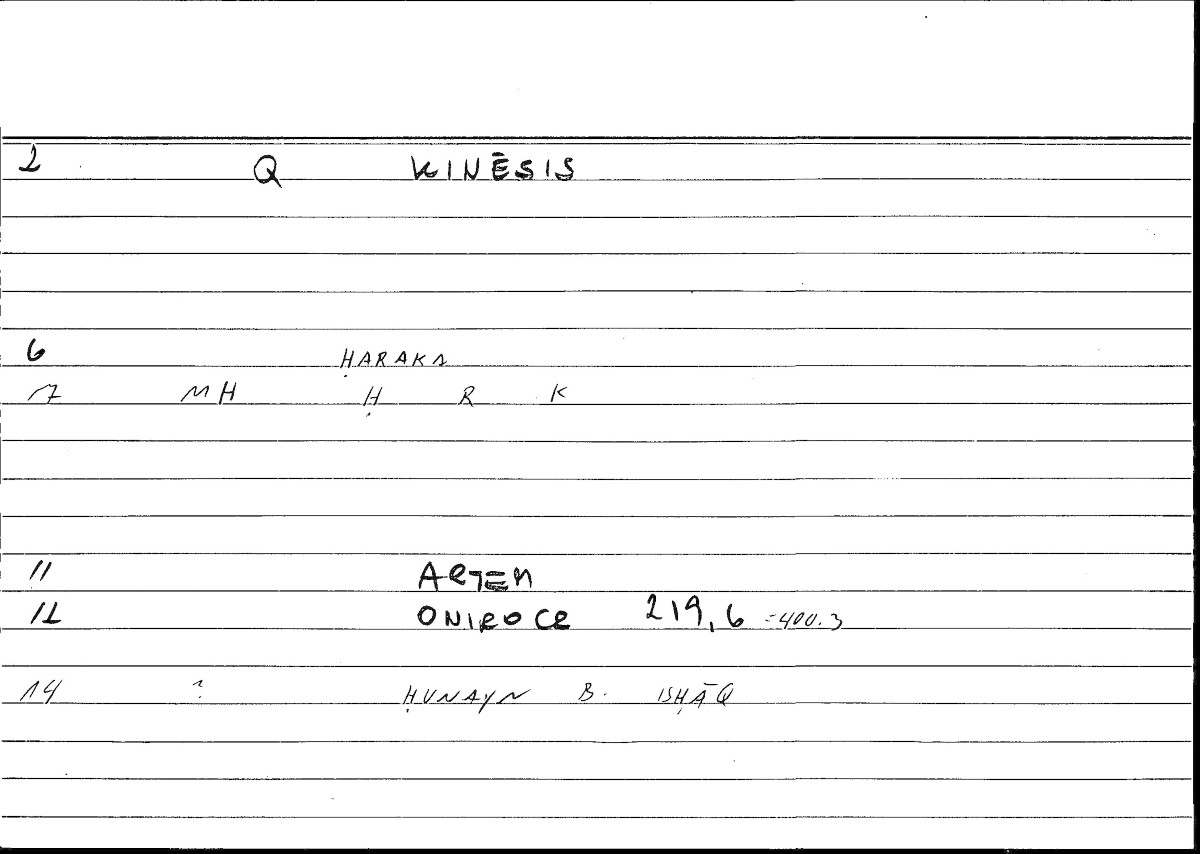 2 Q KINĒSIS
6 ḤARAKA
7 MH Ḥ R K
11 ARTEM
12 ONIROCR 219,6 =400.3
14 ? ḤUNAYN B. ISḤĀQ